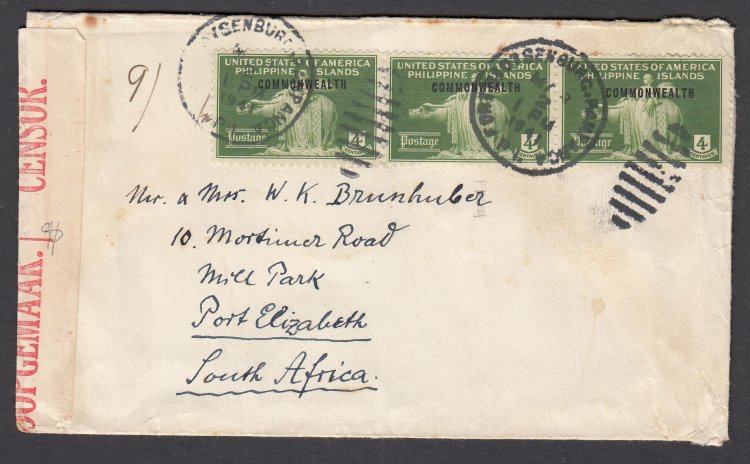 UNITED STATES OF AMERICA
PHILIPPINE ISLANDS
COMMONWEALTH
Postage
4
UNITED STATES OF AMERICA
PHILIPPINE ISLANDS
COMMONWEALTH
Postage
4
UNITED STATES OF AMERICA
PHILIPPINE ISLANDS
COMMONWEALTH
Postage
4
CENTAVOS
9/
Mr. & Mrs. W. K. Brunhuber
10. Mortimer Road
Mill Park
Port Elizabeth
South Africa.
OOPGEMAAK. CENSOR.